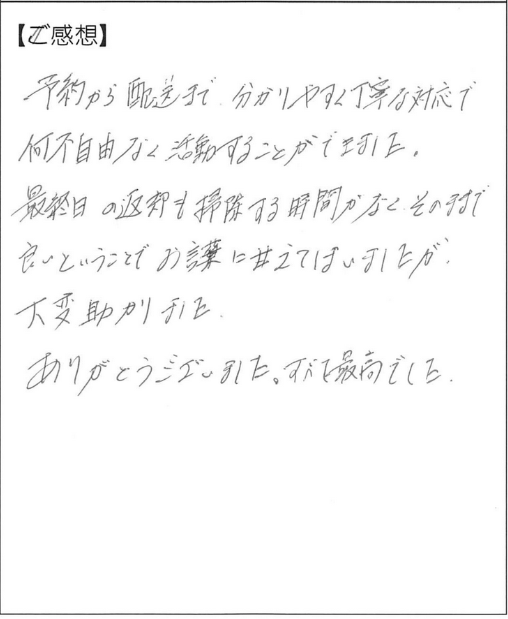 【ご感想】
予約から配送まで 分かりやすく丁寧な対応で
何不自由なく活動することができました。
最終日の返却も掃除する時間がなく、そのままで
良いということで お言葉に甘えてしまいましたが、
大変助かりました。
ありがとうございました。すべて最高でした。